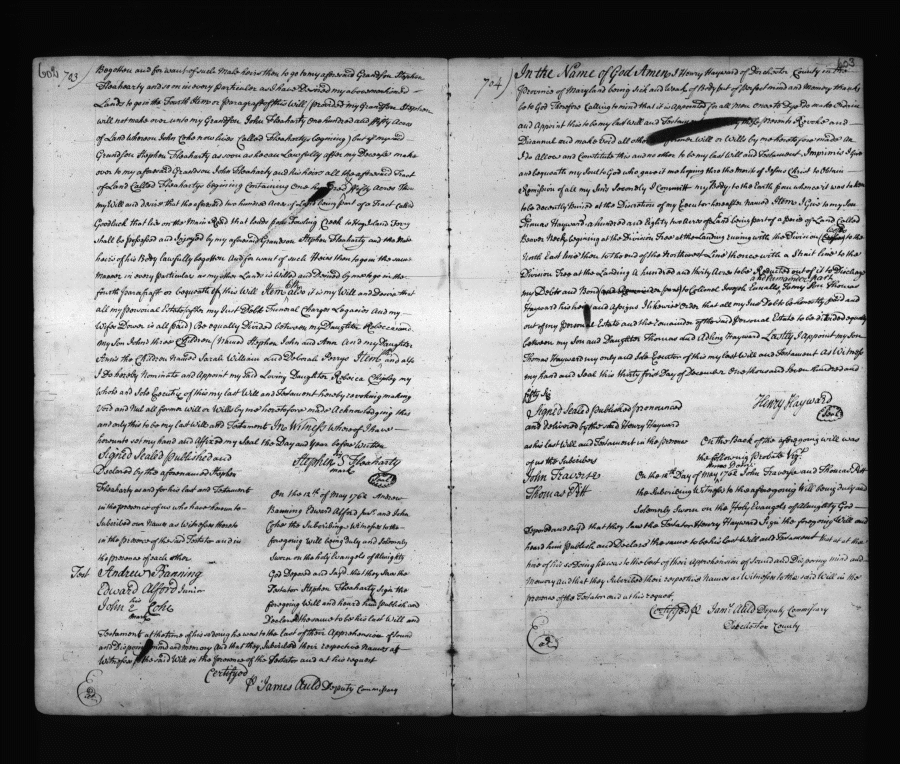 602 703)
Begotten and for want of such Male heirs then to go to my aforesaid Grandson Stephen
Floaharty and so on in every particular as I have Devised my abovementioned
Lands to go in the Fourth Item or paragraph of this Will, provided my Grandson Stephen
will not make over unto my Grandson John Floaharty one hundred and fifty Acres
of Land whereon John Coho now lives Called Floahartys beginning but if my said
Grandson Stephen Floaharty as soon as he can Lawfully after my Decease make
over to my aforesaid Grandson John Floaharty and his heirs all the aforesaid Tract
of Land Called Floahartys beginning Containing one hundred & fifty Acres then
my Will and desire that the aforesaid two hundred Acres of Land being part of a Tract called
Goodluck that lies on the Main Road that leads from Tuckahoe Creek to Hog Island Ferry
shall be possessed and Enjoyed by my aforesaid Grandson Stephen Floaharty and the Male
heirs of his Body Lawfully begotten And for want of such Heirs then to go in the same
Manner in every particular as my other Lands is Willed and Devised by me to go in the
fourth paragraph or bequeath of this Will Item 6th also it is my Will and Desire that
all my personal Estate (after my Just Debts Funeral Charges Legacies And my
Wifes Dower is all paid) Be equally Divided between my Daughter Rebecca and
my Son Johns three Children (Named Stephen John and Ann And my Daughter
Anns the Children Named Sarah William and Deborah Perrys Item 7th and also
I do hereby Nominate and Appoint my said Loving Daughter Rebecca Chipley my
Whole and Sole Executrix of this my last Will and Testament hereby revoking making
Void and Null all former will or Wills by me heretofore made Acknowledging this
and only this to be my last Will and Testament In Witness Whereof I have
hereunto set my hand and Affixed my Seal the Day and Year before Written
Signed Sealed published and
Declared by the aforenamed Stephen
Floaharty as and for his last and Testament
in the presence of us who have hereunto
Subscribed our Names as Witnesses thereto
in the presence of the said Testator and in
the presence of each other
Test Andrew Banning
Edward Alford Junior
John his 2 mark Coho
Stephen his S mark Floaharty
Seal
On the 12th of May 1762 Andrew
Banning Edward Alford Junr. and John
Coho the Subscribing Witnesses to the
foregoing will being duly and Solemnly
Sworn on the holy Evangels of Almighty
God Deposed and Say'd that they Saw the
Testator Stephen Floaharty Sign the
foregoing Will and heard him publish and
Declare the same to be his last Will and
Testament at the time of his so doing he was to the best of their Apprehension of Sound
and Disposing mind and memory And that they Subscribed their respective Names as
Witnesses to the said Will in the presence of the Testator and at his request
Certifyed
Pr James Auld Deputy Commissary
603
704) In the Name of God Amen I Henry Hayward of Dorchester County in the
Province of Maryland being Sick and Weak of Body but of perfect mind and Memory thanks
be to God Therefore Calling to mind that it is appointed for all Men once to Dye do make Ordain
and Appoint this to be my last Will and Testament by these presents Revoke and
Disannul and make void all other former Will or Wills by me heretofore made And
I do Allow and Constitute this and no other to be my last Will and Testament Imprimis I Give
and bequeath my Soul to God who gave it me hoping thro the Merit of Jesus Christ to Obtain
Remission of all my Sins Secondly I Committ my Body to the Earth from whence it was taken
to be decently Buried at the Discretion of my Executor hereafter Named Item I Give to my Son
Thomas Hayward a hundred and Eighty two Acres of Land being part of a parcel of Land Called
Beaver Neck beginning at the Division Tree at the Landing runing with the Division Course to the
North East line then to the end of the Northwest Line thence with a Strait line to the
Division Tree at the Landing A hundred and thirty Acres to be Required out of it to Discharge
my Debts and Bond and Remainder part to Colonel Joseph Ennalls Item my Son Thomas
Hayward his heirs and Assigns I likewise Order that all my Just Debts be honestly paid and
out of my personal Estate and the Remainder of the said Personal Estate to be divided equally
between my Son and Daughter Thomas and Adling Hayward Lastly I appoint my Son
Thomas Hayward my only and Sole Executor of this my last Will and Testament As Witness
my hand and Seal this thirty first Day of December One thousand Seven hundred and
fifty Six
Henry Hayward
Seal
Signed Sealed published pronounced
and delivered by the said Henry Hayward
as his last Will and Testament in the presence
of us the Subscribers
John Traverse
Thomas Pitt
On the Back of the aforegoing will was
the following probate Vizt.
On the 12th Day of May 1762 John Traverse and Thomas Pitt
the Subscribing Witnesses to the aforegoing Will being duly and
Solemnly Sworn on the Holy Evangels of Almighty God
Deposed and Say'd that they Saw the Testator Henry Hayward Sign the foregoing Will and
heard him Publish and Declare the same to be his last Will and Testament that at the
time of his so doing he was to the best of their apprehension of Sound and Disposing mind and
Memory And that they Subscribed their respective Names as Witnesses to the said Will in the
presence of the Testator and at his request
Certifyed Pr Jams. Auld Deputy Commissary
Dorchester County